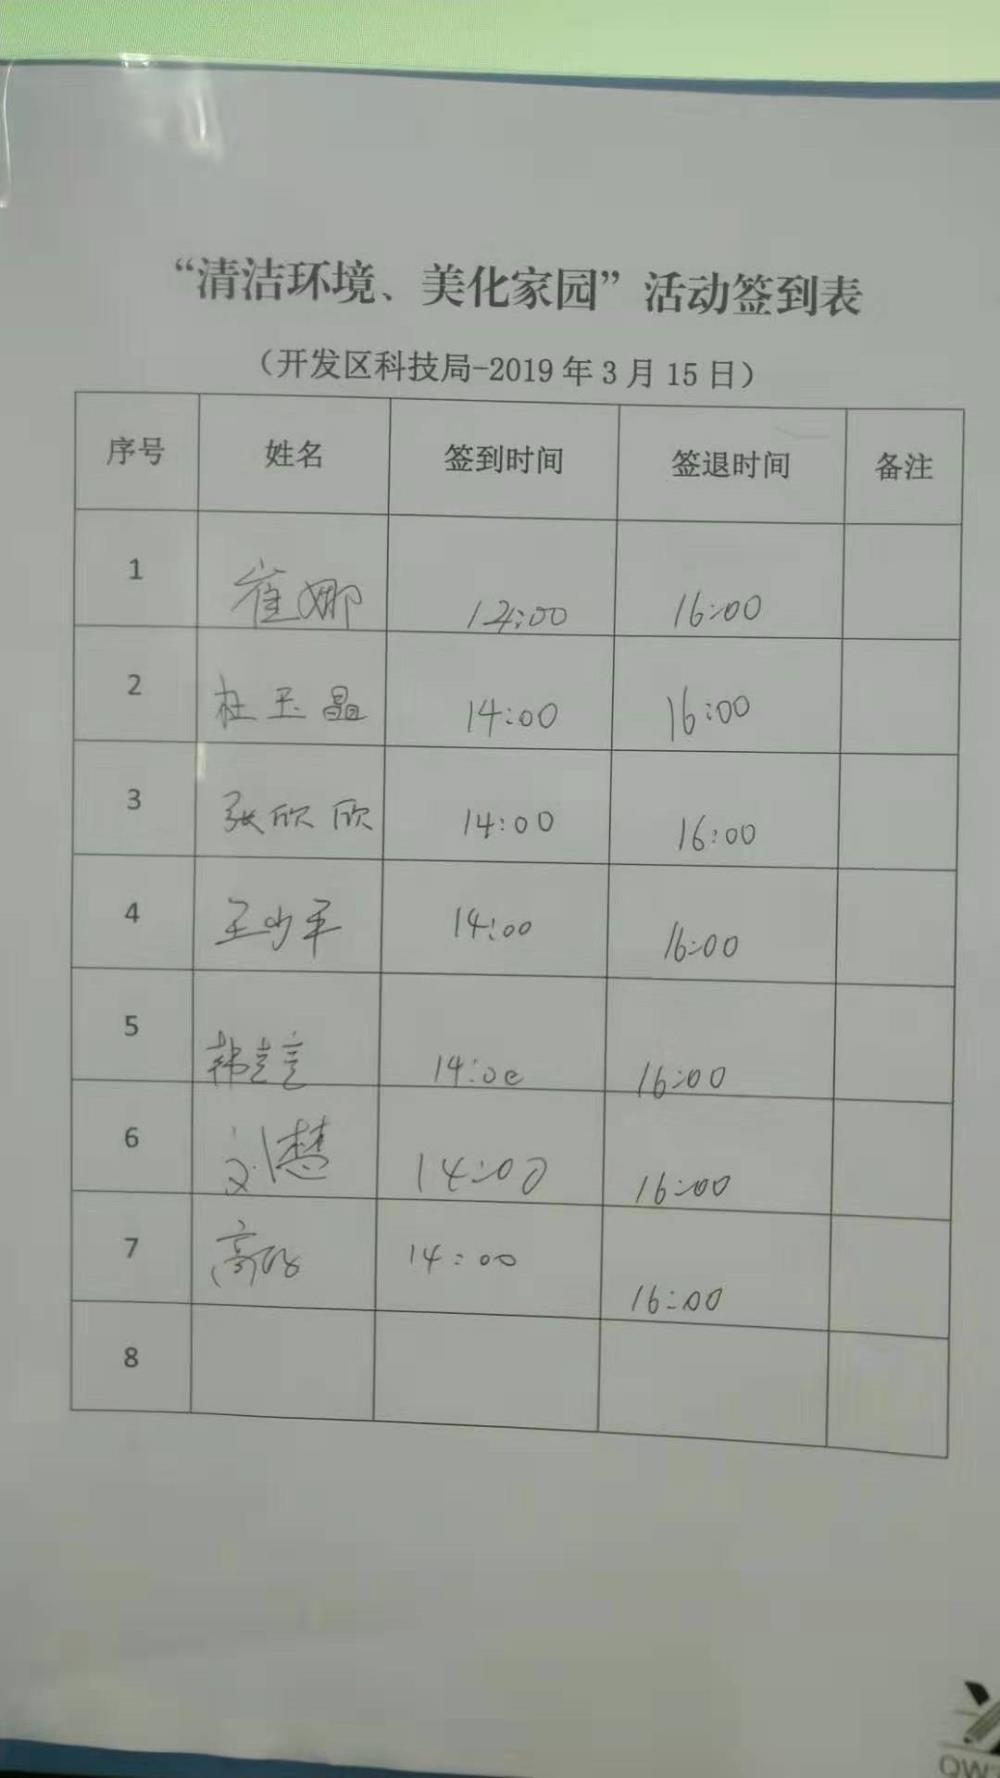 “清洁环境、美化家园”活动签到表
（开发区科技局-2019年3月15日）
序号 姓名 签到时间 签退时间 备注
1 崔娜 14:00 16:00
2 杜玉晶 14:00 16:00
3 张欣欣 14:00 16:00
4 王少军 14:00 16:00
5 韩 14:00 16:00
6 刘慧 14:00 16:00
7 高 14:00 16:00
8
QW